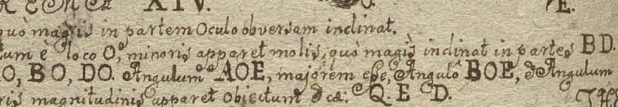 XIV. E.
quò magis in partem Oculo obversam inclinat.
tum è loco O, minoris apparet molis, quò magis inclinat in partes BD.
O, BO, DO. Angulum AOE, majorem esse, Angulô BOE, & Angulum
ris magnitudinis apparet Objectum &cæ: Q. E. D.